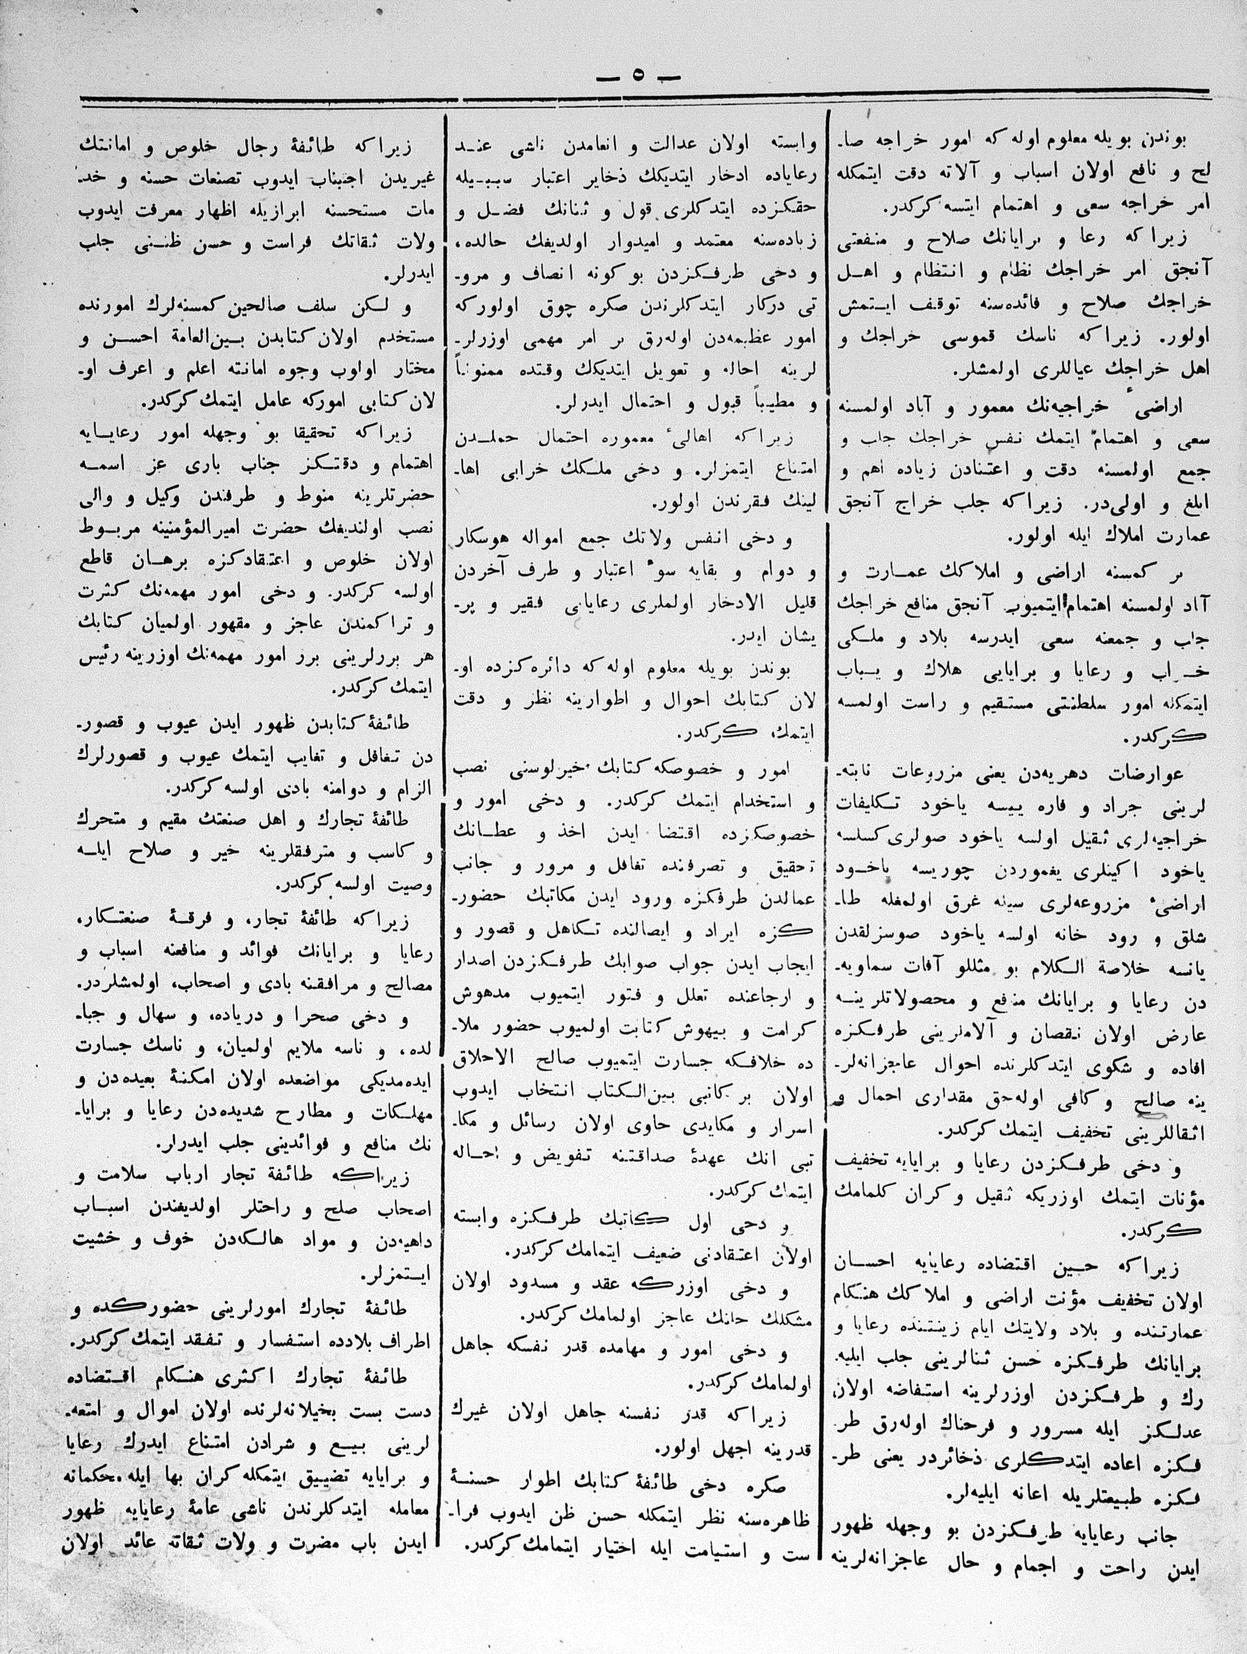 — ٥ —
بوندن بویله معلوم اوله كه امور خراجه صا‌ـ
لح و نافع اولان اسباب و آلاته دقت ایتمكله
امر خراجه سعی و اهتمام ایتسه كركدر.
زیرا كه رعا و برایانك صلاح و منفعتی
آنجق امر خراجك نظام و انتظام و اهل
خراجك صلاح و فائده‌سنه توقف ایتمش
اولور. زیرا كه ناسك قموسی خراجك و
اهل خراجك عیاللری اولمشلر.
اراضیٔ خراجیه‌نك معمور و آباد اولمسنه
سعی و اهتمام ایتمك نفس خراجك جلب و
جمع اولمسنه دقت و اعتنادن زیاده اهم و
ابلغ و اولی‌در. زیرا كه جلب خراج آنجق
عمارت املاك ایله اولور.
بر كمسنه اراضی و املاكك عمارت و
آباد اولمسنه اهتمام ایتمیوب آنجق منافع خراجك
جلب و جمعنه سعی ایدرسه بلاد و ملكی
خراب و رعایا و برایایی هلاك و یباب
ایتمكله امور سلطنتی مستقیم و راست اولمسه
كركدر.
عوارضات دهریه‌دن یعنی مزروعات نابته‌ـ
لرینی جراد و فاره ییسه یاخود تكلیفات
خراجیه‌لری ثقیل اولسه یاخود صولری كسلسه
یاخود اكینلری یغموردن چوریسه یاخود
اراضیٔ مزروعه‌لری سیله غرق اولمغله طا‌ـ
شلق و رود خانه اولسه یاخود صوسزلقدن
یانسه خلاصة الكلام بو مثللو آفات سماویه‌ـ
دن رعایا و برایانك منافع و محصولاتلرینه
عارض اولان نقصان و آلاملرینی طرفكزه
افاده و شكوی ایتدكلرنده احوال عاجزانه‌لر‌ـ
ینه صالح و كافی اوله‌جق مقداری احمال و
اثقاللرینی تخفیف ایتمك كركدر.
و دخی طرفكزدن رعایا و برایایه تخفیف
مؤنات ایتمك اوزریكه ثقیل و كران كلمامك
كركدر.
زیرا كه حین اقتضاده رعایایه احسان
اولان تخفیف مؤنت اراضی و املاكك هنكام
عمارتنده و بلاد ولایتك ایام زینتنده رعایا و
برایانك طرفكزه حسن ثنالرینی جلب ایلیه‌ـ
رك و طرفكزدن اوزرلرینه استفاضه اولان
عدلكز ایله مسرور و فرحناك اوله‌رق طر‌ـ
فكزه اعاده ایتدكلری ذخائردر یعنی طر‌ـ
فكزه طبیعتلریله اعانه ایلیه‌لر.
جانب رعایایه طرفكزدن بو وجهله ظهور
ایدن راحت و اجمام و حال عاجزانه‌لرینه
وابسته اولان عدالت و انعامدن ناشی عند
رعایاده ادخار ایتدیكك ذخایر اعتبار سببیله
حقكزده ایتدكلری قول و ثنانك فضل و
زیاده‌سنه معتمد و امیدوار اولدیغك حالده،
و دخی طرفكزدن بو كونه انصاف و مرو‌ـ
تی دركار ایتدكلرندن صكره چوق اولور كه
امور عظیمه‌دن اوله‌رق بر امر مهمی اوزرلر‌ـ
لرینه احاله و تعویل ایتدیكك وقتده ممنوناً
و مطیباً قبول و احتمال ایدرلر.
زیرا كه اهالیٔ معموره احتمال حملدن
امتناع ایتمزلر. و دخی ملكك خرابی اها‌ـ
لینك فقرندن اولور.
و دخی انفس ولاتك جمع امواله هوسكار
و دوام و بقایه سوء اعتبار و طرف آخردن
قلیل الادخار اولملری رعایایی فقیر و پر‌ـ
یشان ایدر.
بوندن بویله معلوم اوله كه دائره‌كزده او‌ـ
لان كتابك احوال و اطوارینه نظر و دقت
ایتمك كركدر.
امور و خصوصكه كتابك خیرلوسنی نصب
و استخدام ایتمك كركدر. و دخی امور و
خصوصكزده اقتضا ایدن اخذ و عطانك
تحقیق و تصرفنده تغافل و مرور و جانب
عمالدن طرفكزه ورود ایدن مكاتیبك حضور‌ـ
كزه ایراد و ایصالنده تكاهل و قصور و
ایجاب ایدن جواب صوابك طرفكزدن اصدار
و ارجاعنده تعلل و فتور ایتمیوب مدهوش
كرامت و بیهوش كتابت اولمیوب حضور ملا‌ـ
ده خلافكه جسارت ایتمیوب صالح الاخلاق
اولان بر كاتبی بین‌الكتاب انتخاب ایدوب
اسرار و مكایدی حاوی اولان رسائل و مكا‌ـ
تبی انك عهدهٔ صداقتنه تفویض و احاله
ایتمك كركدر.
و دخی اول كاتبك طرفكزه وابسته
اولان اعتقادنی ضعیف ایتمامك كركدر.
و دخی اوزركه عقد و مسدود اولان
مشكلك حلنك عاجز اولمامك كركدر.
و دخی امور و مهامده قدر نفسكه جاهل
اولمامك كركدر.
زیرا كه قدر نفسنه جاهل اولان غیرك
قدرینه اجهل اولور.
صكره دخی طائفهٔ كتابك اطوار حسنهٔ
ظاهره‌سنه نظر ایتمكله حسن ظن ایدوب فرا‌ـ
ست و استیامت ایله اختیار ایتمامك كركدر.
زیرا كه طائفهٔ رجال خلوص و امانتك
غیریدن اجتناب ایدوب تصنعات حسنه و خد‌ـ
مات مستحسنه ابرازیله اظهار معرفت ایدوب
ولات ثقاتك فراست و حسن ظنی جلب
ایدرلر.
و لكن سلف صالحین كمسنه‌لرك امورنده
مستخدم اولان كتابدن بین‌العامة احسن و
مختار اولوب وجوه امانته اعلم و اعرف او‌ـ
لان كتابی اموركه عامل ایتمك كركدر.
زیرا كه تحقیقا بو وجهله امور رعایایه
اهتمام و دقتكز جناب باری عز اسمه
حضرتلرینه منوط و طرفندن وكیل و والی
نصب اولندیغك حضرت امیرالمؤمنینه مربوط
اولان خلوص و اعتقادكزه برهان قاطع
اولسه كركدر. و دخی امور مهمه‌نك كثرت
و تراكمندن عاجز و مقهور اولمیان كتابك
هر بررلرینی برر امور مهمه‌نك اوزرینه رئیس
ایتمك كركدر.
طائفهٔ كتابدن ظهور ایدن عیوب و قصور‌ـ
دن تغافل و تغایب ایتمك عیوب و قصورلرك
الزام و دوامنه بادی اولسه كركدر.
طائفهٔ تجارك و اهل صنعتك مقیم و متحرك
و كاسب و مترفقلرینه خیر و صلاح ایله
وصیت اولسه كركدر.
زیرا كه طائفهٔ تجار، و فرقهٔ صنعتكار،
رعایا و برایانك فوائد و منافعنه اسباب و
مصالح و مرافقنه بادی و اصحاب، اولمشلردر.
و دخی صحرا و دریاده، و سهال و جبا‌ـ
لده، و ناسه ملایم اولمیان، و ناسك جسارت
ایده‌مدیكی مواضعده اولان امكنهٔ بعیده‌دن و
مهلكات و مطارح شدیده‌دن رعایا و برایا‌ـ
نك منافع و فوائدینی جلب ایدرلر.
زیرا كه طائفهٔ تجار ارباب سلامت و
اصحاب صلح و راحتلر اولدیغندن اسباب
داهیه‌دن و مواد هالكه‌دن خوف و خشیت
ایتمزلر.
طائفهٔ تجارك امورلرینی حضوركده و
اطراف بلادده استفسار و تفقد ایتمك كركدر.
طائفهٔ تجارك اكثری هنكام اقتضاده
دست بست بخیلانه‌لرنده اولان اموال و امتعه‌ـ
لرینی بیع و شرادن امتناع ایدرك رعایا
و برایایه تضییق ایتمكله كران بها ایله محكمانه
معامله ایتدكلرندن ناشی عامهٔ رعایایه ظهور
ایدن باب مضرت و ولات ثقاته عائد اولان